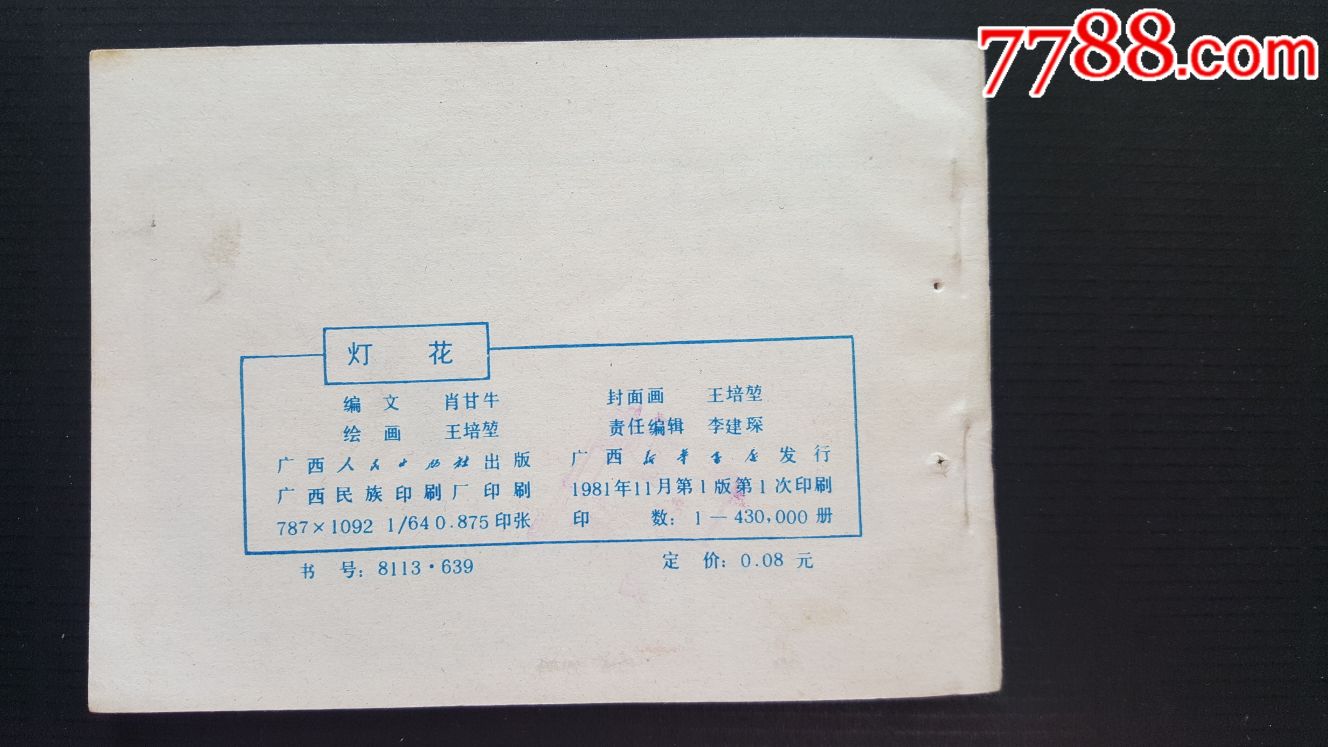 7788.com
灯 花
编 文 肖甘牛 封面画 王培堃
绘 画 王培堃 责任编辑 李建琛
广西人民出版社出版 广西新华书店发行
广西民族印刷厂印刷 1981年11月第1版第1次印刷
787×1092 1/64 0.875印张 印 数：1—430,000 册
书 号：8113·639 定 价：0.08 元